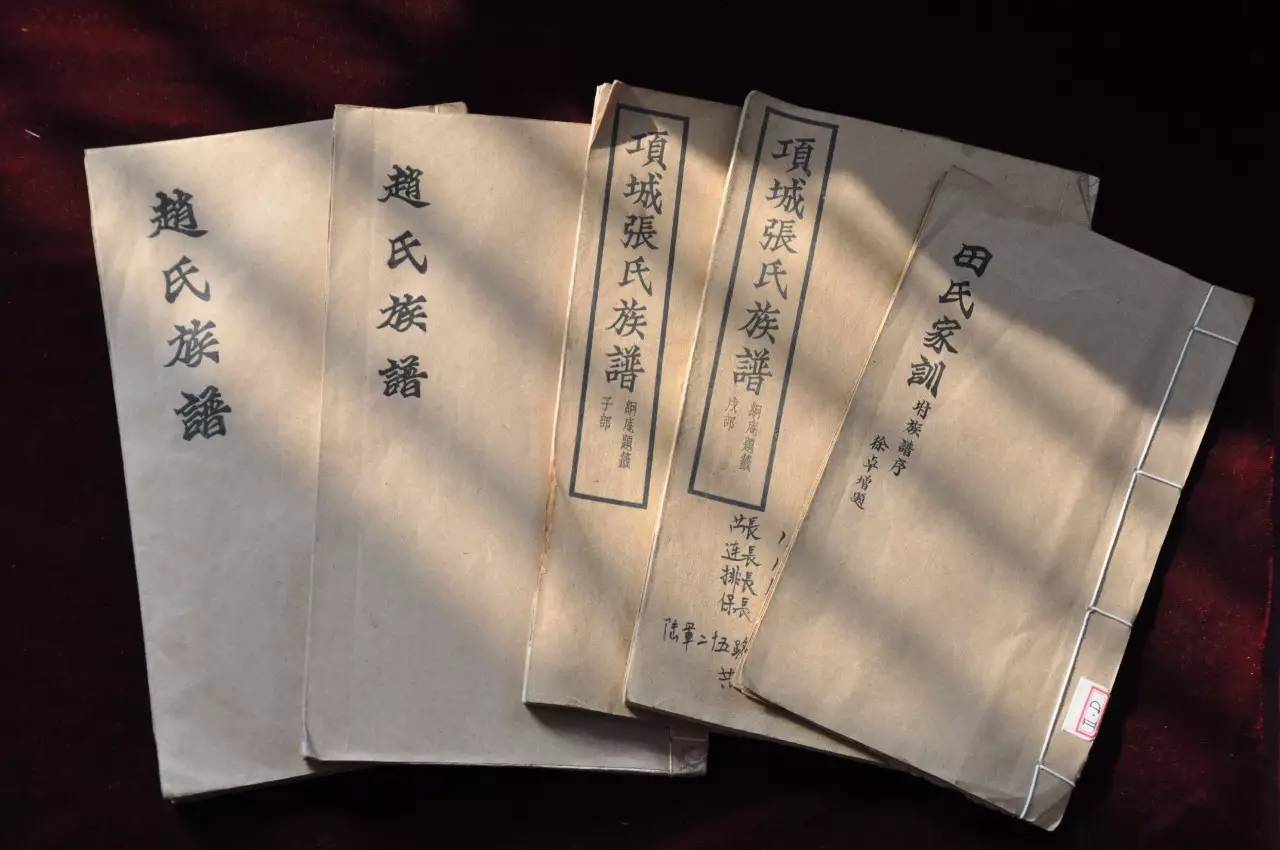 趙氏族譜
趙氏族譜
項城張氏族譜
絅庵題籤
子部
項城張氏族譜
絅庵題籤
戊部
長長長長
连排保
陆軍二十五
共
田氏家訓
坿族譜序
徐卓增題